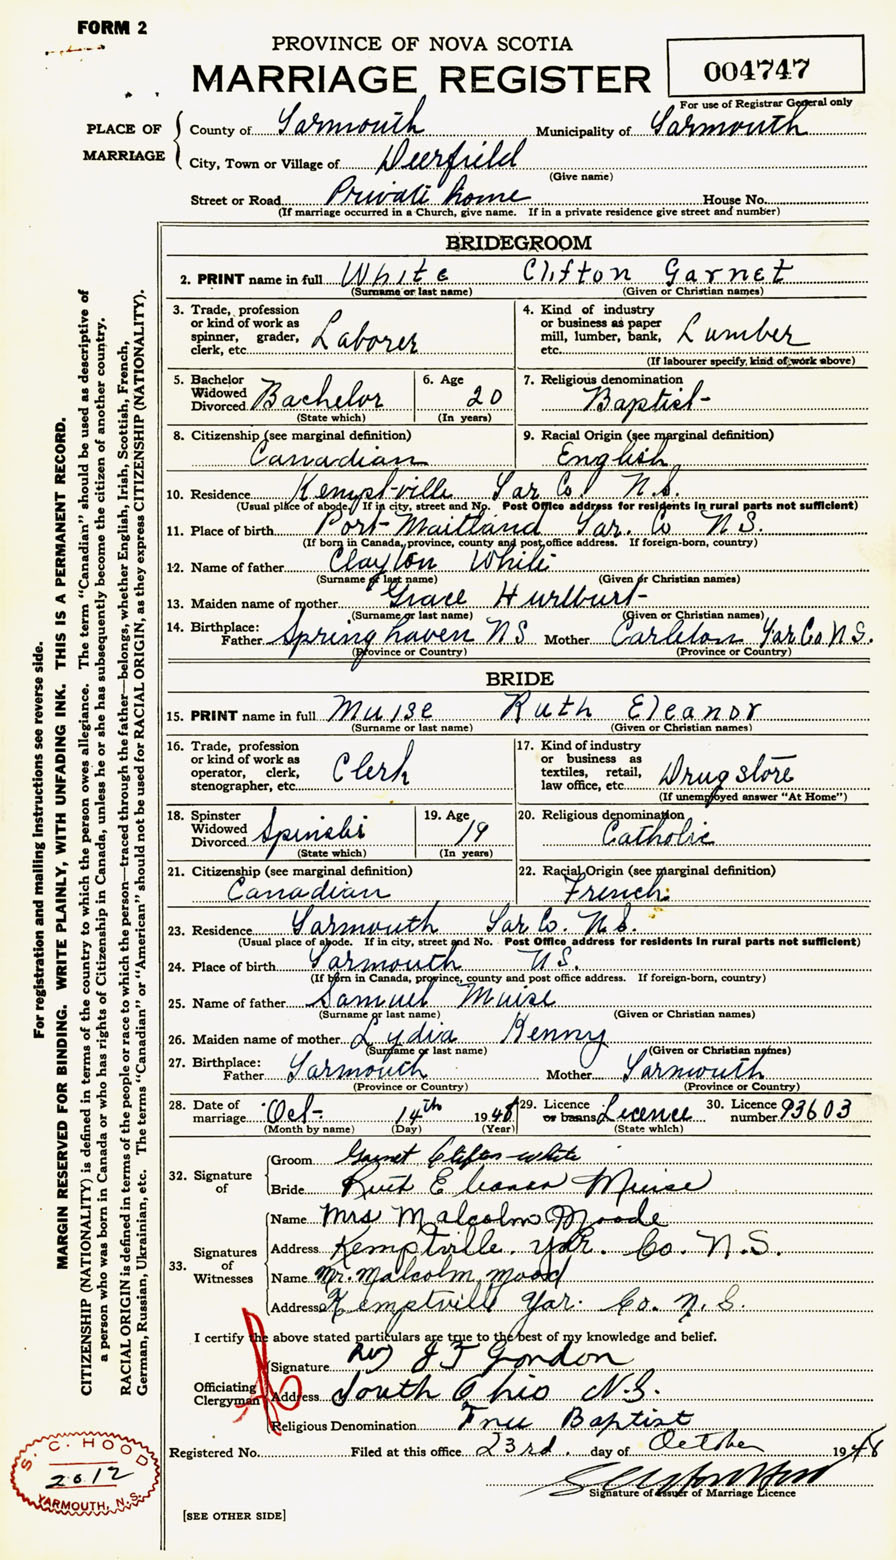 FORM 2
PROVINCE OF NOVA SCOTIA
MARRIAGE REGISTER
004747
For use of Registrar General only
PLACE OF MARRIAGE
County of Yarmouth Municipality of Yarmouth
City, Town or Village of Deerfield
(Give name)
Street or Road Private home House No.
(If marriage occurred in a Church, give name. If in a private residence give street and number)
BRIDEGROOM
2. PRINT name in full White Clifton Garnet
(Surname or last name) (Given or Christian names)
3. Trade, profession or kind of work as spinner, grader, clerk, etc. Laborer
4. Kind of industry or business as paper mill, lumber, bank, etc. Lumber
(If labourer specify, kind of work above)
5. Bachelor Widowed Divorced Bachelor
(State which)
6. Age 20
(In years)
7. Religious denomination Baptist
8. Citizenship (see marginal definition) Canadian
9. Racial Origin (see marginal definition) English
10. Residence Kemptville Yar Co. N.S.
(Usual place of abode. If in city, street and No. Post Office address for residents in rural parts not sufficient)
11. Place of birth Port-Maitland Yar. Co N.S.
(If born in Canada, province, county and post office address. If foreign-born, country)
12. Name of father Clayton White
(Surname or last name) (Given or Christian names)
13. Maiden name of mother Grace Hurlburt
(Surname or last name) (Given or Christian names)
14. Birthplace: Father Springhaven NS Mother Carleton Yar.Co N.S.
(Province or Country) (Province or Country)
BRIDE
15. PRINT name in full Muise Ruth Eleanor
(Surname or last name) (Given or Christian names)
16. Trade, profession or kind of work as operator, clerk, stenographer, etc. Clerk
17. Kind of industry or business as textiles, retail, law office, etc. Drug store
(If unemployed answer "At Home")
18. Spinster Widowed Divorced Spinster
(State which)
19. Age 19
(In years)
20. Religious denomination Catholic
21. Citizenship (see marginal definition) Canadian
22. Racial Origin (see marginal definition) French
23. Residence Yarmouth Yar Co. N.S.
(Usual place of abode. If in city, street and No. Post Office address for residents in rural parts not sufficient)
24. Place of birth Yarmouth N.S.
(If born in Canada, province, county and post office address. If foreign-born, country)
25. Name of father Samuel Muise
(Surname or last name) (Given or Christian names)
26. Maiden name of mother Lydia Kenny
(Surname or last name) (Given or Christian names)
27. Birthplace: Father Yarmouth Mother Yarmouth
(Province or Country) (Province or Country)
28. Date of marriage Oct- 14th 1948
(Month by name) (Day) (Year)
29. Licence or banns Licence
(State which)
30. Licence number 93603
32. Signature of
Groom Garnet Clifton White
Bride Ruth Eleanor Muise
33. Signatures of Witnesses
Name Mrs Malcolm Moode
Address Kemptville. Yar. Co. N.S.
Name Mr. Malcolm Mood
Address Kemptville Yar. Co. N.S.
I certify the above stated particulars are true to the best of my knowledge and belief.
Officiating Clergyman
Signature Rev J F Gordon
Address South Ohio N.S.
Religious Denomination Free Baptist
Registered No. Filed at this office 23rd. day of October 1948
Signature of Issuer of Marriage Licence
[SEE OTHER SIDE]
S. C. HOOD
2612
YARMOUTH, N.S.
For registration and mailing instructions see reverse side.
MARGIN RESERVED FOR BINDING. WRITE PLAINLY, WITH UNFADING INK. THIS IS A PERMANENT RECORD.
CITIZENSHIP (NATIONALITY) is defined in terms of the country to which the person owes allegiance. The term "Canadian" should be used as descriptive of
a person who was born in Canada or who has rights of Citizenship in Canada, unless he or she has subsequently become the citizen of another country.
RACIAL ORIGIN is defined in terms of the people or race to which the person—traced through the father—belongs, whether English, Irish, Scottish, French,
German, Russian, Ukrainian, etc. The terms "Canadian" or "American" should not be used for RACIAL ORIGIN, as they express CITIZENSHIP (NATIONALITY).